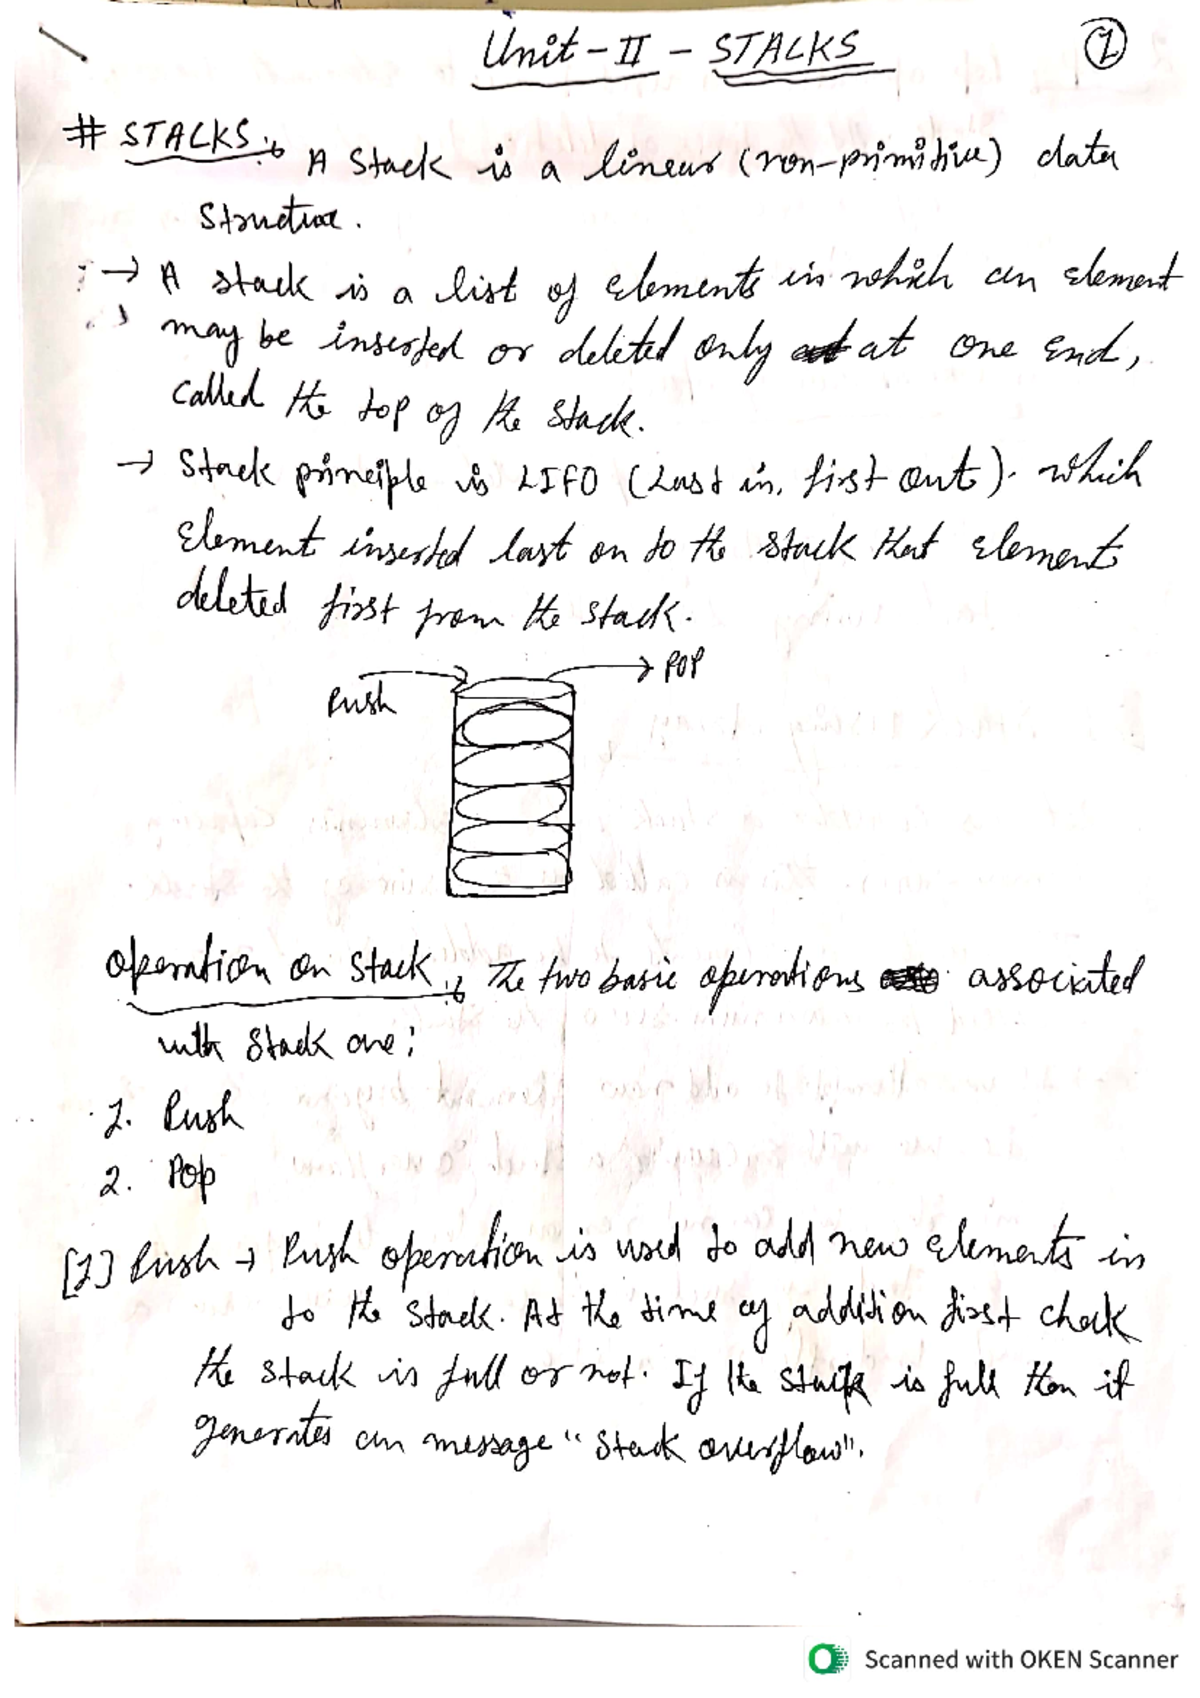 Unit-II - STALKS
1
# STALKS:
A Stack is a linear (non-primitive) data
Structure.
→ A stack is a list of elements in which an element
may be inserted or deleted only at one end,
called the top of the stack.
→ Stack principle is LIFO (Last in, first out). which
element inserted last on to the stack that elements
deleted first from the stack.
Push
→ POP
operation on stack: The two basic operations associated
with Stack are:
1. Push
2. Pop
[1] Push → Push operation is used to add new elements in
to the stack. At the time of addition first check
the stack is full or not. If the stack is full then it
generates an message "Stack overflow".
Scanned with OKEN Scanner